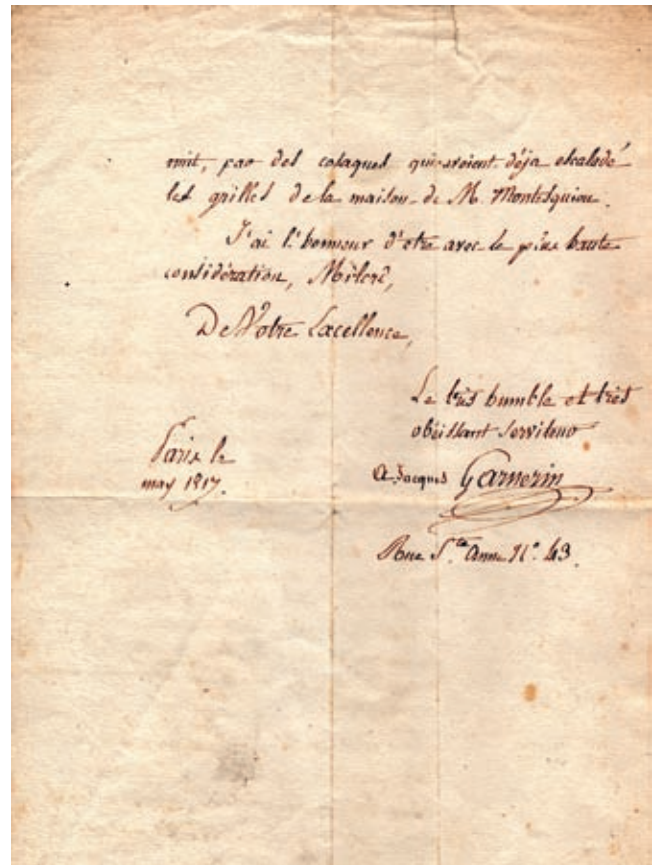 nuit, par des cosaques qui avoient déja escaladé
les grilles de la maison de M. Montesquiou.
J'ai l'honneur d'etre avec la plus haute
considération, Milord,
De Votre Excellence,
Le très humble et très
obéissant serviteur
A. Jacques Garnerin
Paris le
may 1817.
Rue Ste Anne No. 43.